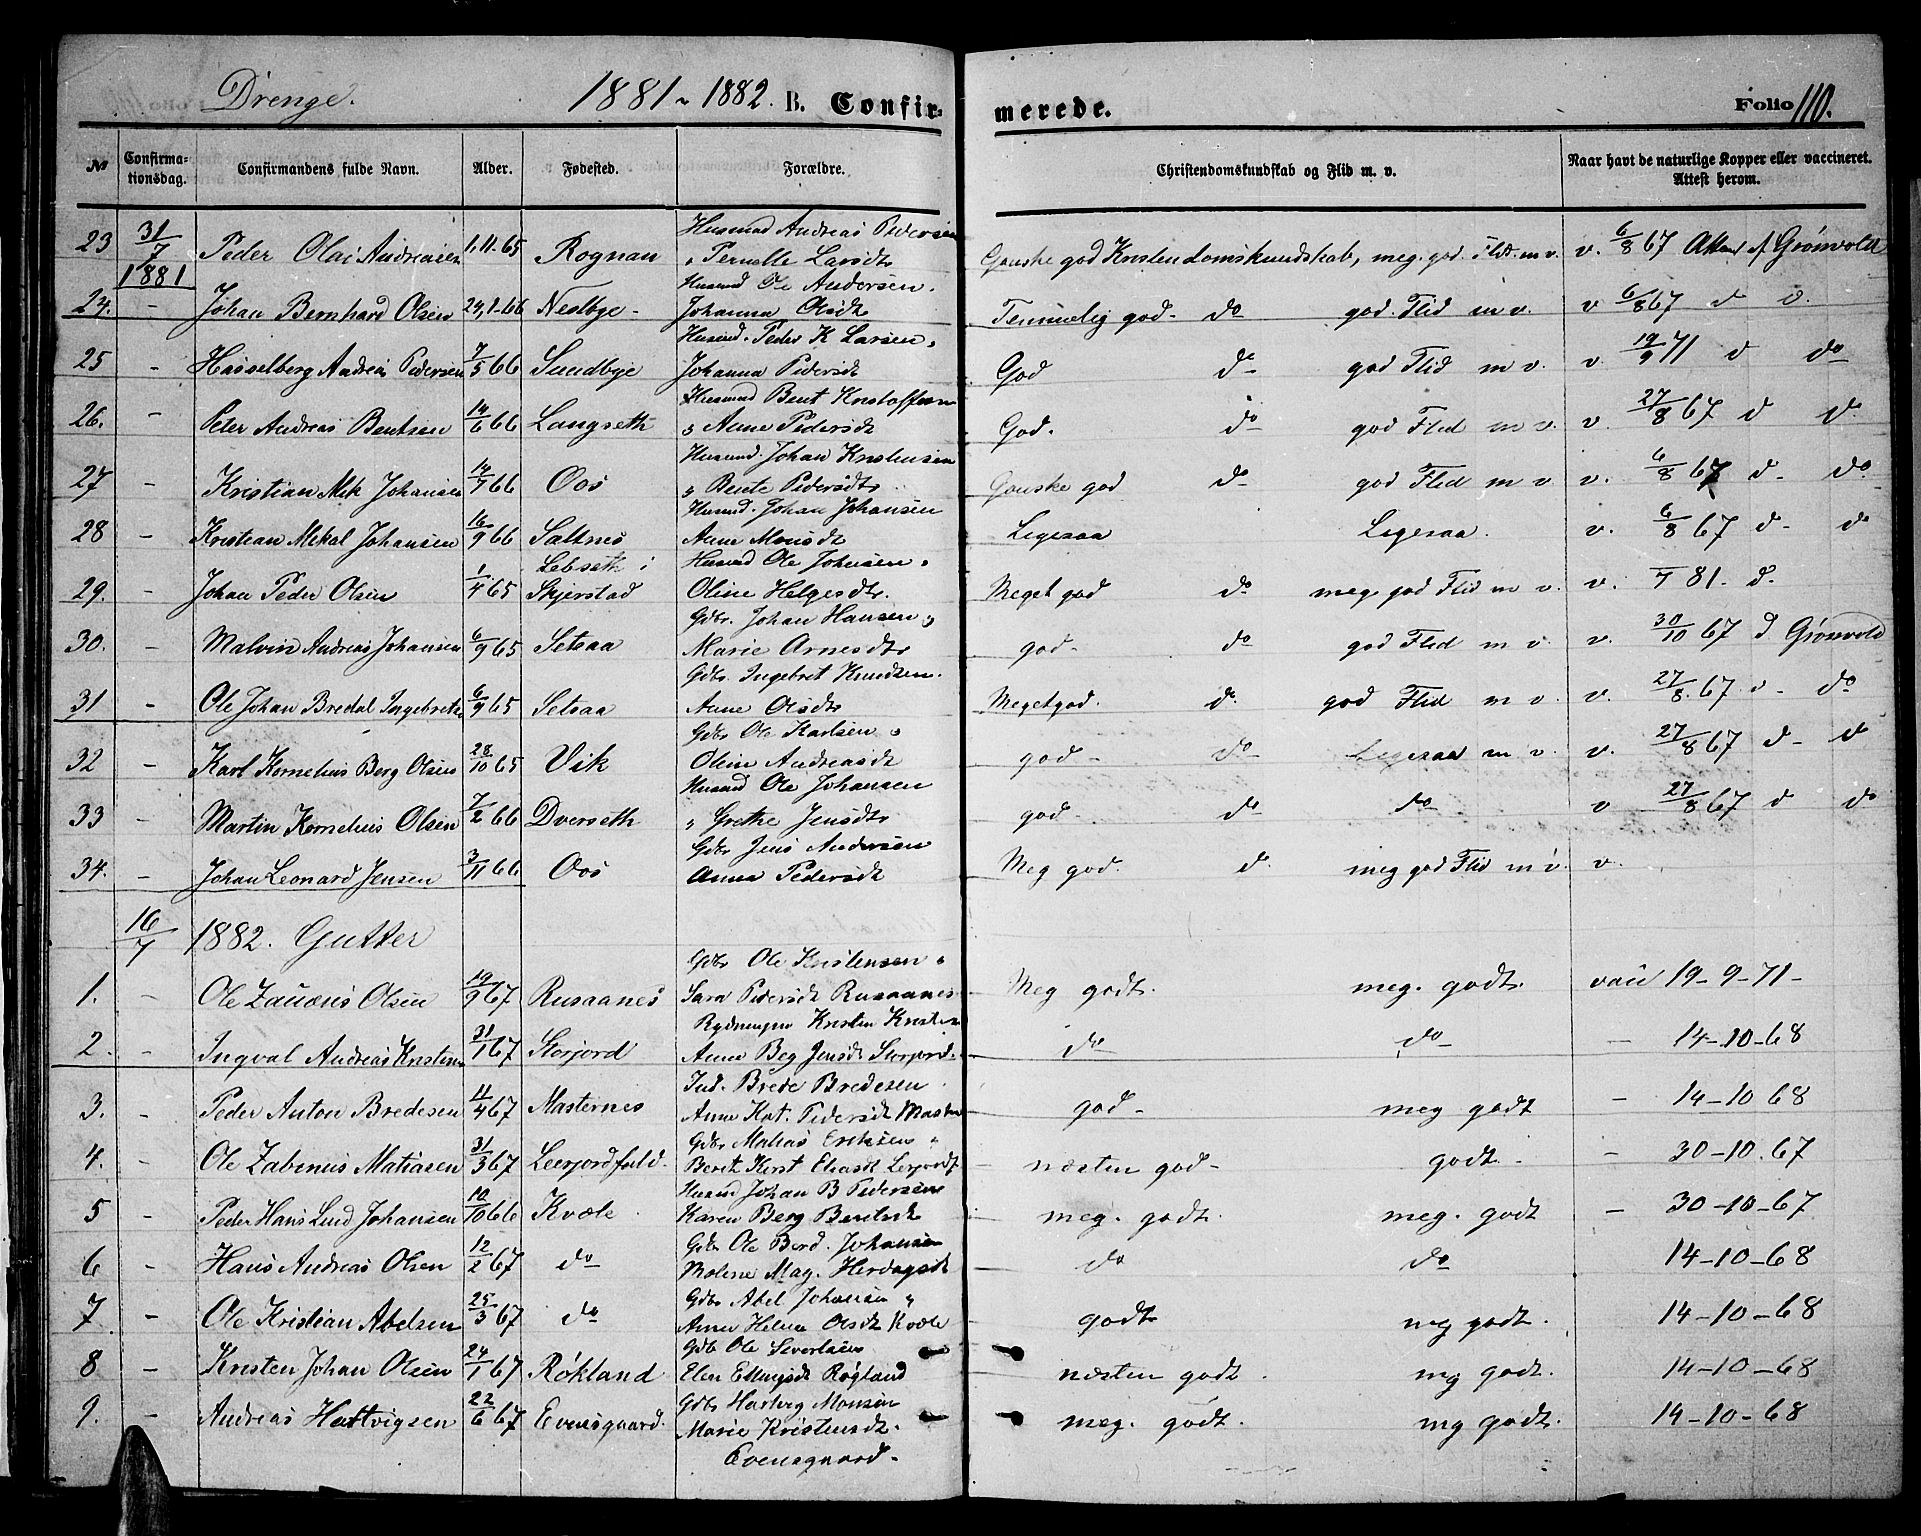 Drenge. 1881-1882. B. Confirmerede. Folio 110.
№ Confirmationsdag. Confirmandens fulde Navn. Alder. Fødested. Forældre. Christendomskundskab og Flid m. v. Naar havt de naturlige Kopper eller vaccineret. Attest herom.
Husmd Andreas Pedersen
23 31/7 1881 Peder Olai Andreasen 1.11.65 Rognan Pernelle Larsdtr Ganske god Kristendomskundskab, meg. god Flid m v. v. 6/8 67 Attest af Grønvold
Husmd Ole Andersen.
24. - Johan Bernhard Olsen 24,1-66 Nestbye - Johanna Olsdtr Temmelig god - do god Flid m v. v 6/8 67 d o.
Husmd. Peder K Larsen,
25 - Hasselberg Andreas Pedersen 7/5 66 Sundbye Johanna Pedersdt God do god Flid m v. v. 19/9 71 d do
Husmd Bent Kristoffersen
26. - Peter Andreas Bentsen 14/6 66 Langseth Anne Pedersdt God. do god Flid m v. v. 27/8 67 d do
Husmd. Johan Kristensen
27 - Kristian Mek Johansen 14/7 66 Oos Bente Pedersdtr Ganske god do god Flid m v v. 6/8 67 d - do
Husmd. Johan Johansen
28 - Kristian Mekal Johansen 16/9 66 Saltnes Anne Monsdt Ligesaa Ligesaa. v. 6/8 67 d - do
Lebseth i Husmd Ole Johnsen,
29. - Johan Peder Olsen 1/4 65 Skjerstad Oline Helgesdtr. Meget god do meg god Flid m v. v. /7 81. d.
Gdbr. Johan Hansen,
30. - Malvin Andreas Johansen 6/9 65 Setsaa Marie Arnesdtr god - do god Flid m v. v. 30/10 67 d Grønvold
Gdbr. Ingebret Knudsen.
31 - Ole Johan Bredal Ingebretsen 6/9 65 Setsaa Anne Olsdtr Meget god. do god Flid m v. v. 27/8 67 d - do
Gdbr Ole Karlsen,
32 - Karl Kornelius Berg Olsen 28/10 65 Vik Oline Andreasdt god - do Ligesaa m v. v. 27/8 67 d - do
Husmd Ole Johansen
33 - Martin Kornelius Olsen 7/2 66 Dverseth Grethe Jensdtr god - do do v 27/8 67 d do
Gdbr Jens Andersen
34. - Johan Leonard Jensen 3/11 66 Oos Anna Pedersdt Meg god. d. meg god Flid m v. v.
16/7 1882. Gutter
Gdbr Ole Kristensen,
1. - Ole Zauæus Olsen 19/9 67 Rusaanes Sara Pedersdt Rusaanes Meg godt. meg. godt. 19-9-71-
Kristen
2. - Ingval Andreas Kristens 31/1 67 Storjord Anne Beg Jensdt Storjord. do do - 14-10-68
Ind. Brede Bredesen
3. - Peder Anton Bredesen 11/4 67 Masternes Anne Kat. Pedersdt god - meg godt - 14-10 68
Gdbr Matias Eriksen,
4. - Ole Zabinus Matiasen 31/3 67 Leerjordfald. Berit Kirst næsten god - godt - - 30-10.67
Husmd Johan B Pedersen
5 - Peder Hans Lund Johansen 10/10 66 Kvæle. Karen Berg Bentsdt meg. godt. meg. godt - 30-10-67
Gdbr Ole Berd. Johansen
6 - Hans Andreas Olsen 12/2 67 do Mag. do do 14-10-68
Gdbr Abel Johansen,
7 - Ole Kristian Abelsen 25/3 67 do Anne Helene Olsdt Kvæle godt meg godt. 14-10-68
Gdb Ole
8 - Kristen Johan Olsen 24/1 67 Røkland Elen Ellingsdt Røgland næsten godt. meg godt. 14-10-68
Gdbr Hartvig Monsen
9. - Andreas Hartvigsen 22/6 67 Evensgaard. Marie Kristensdt. meg. godt. meg godt. 14-10-68
Evensgaard -